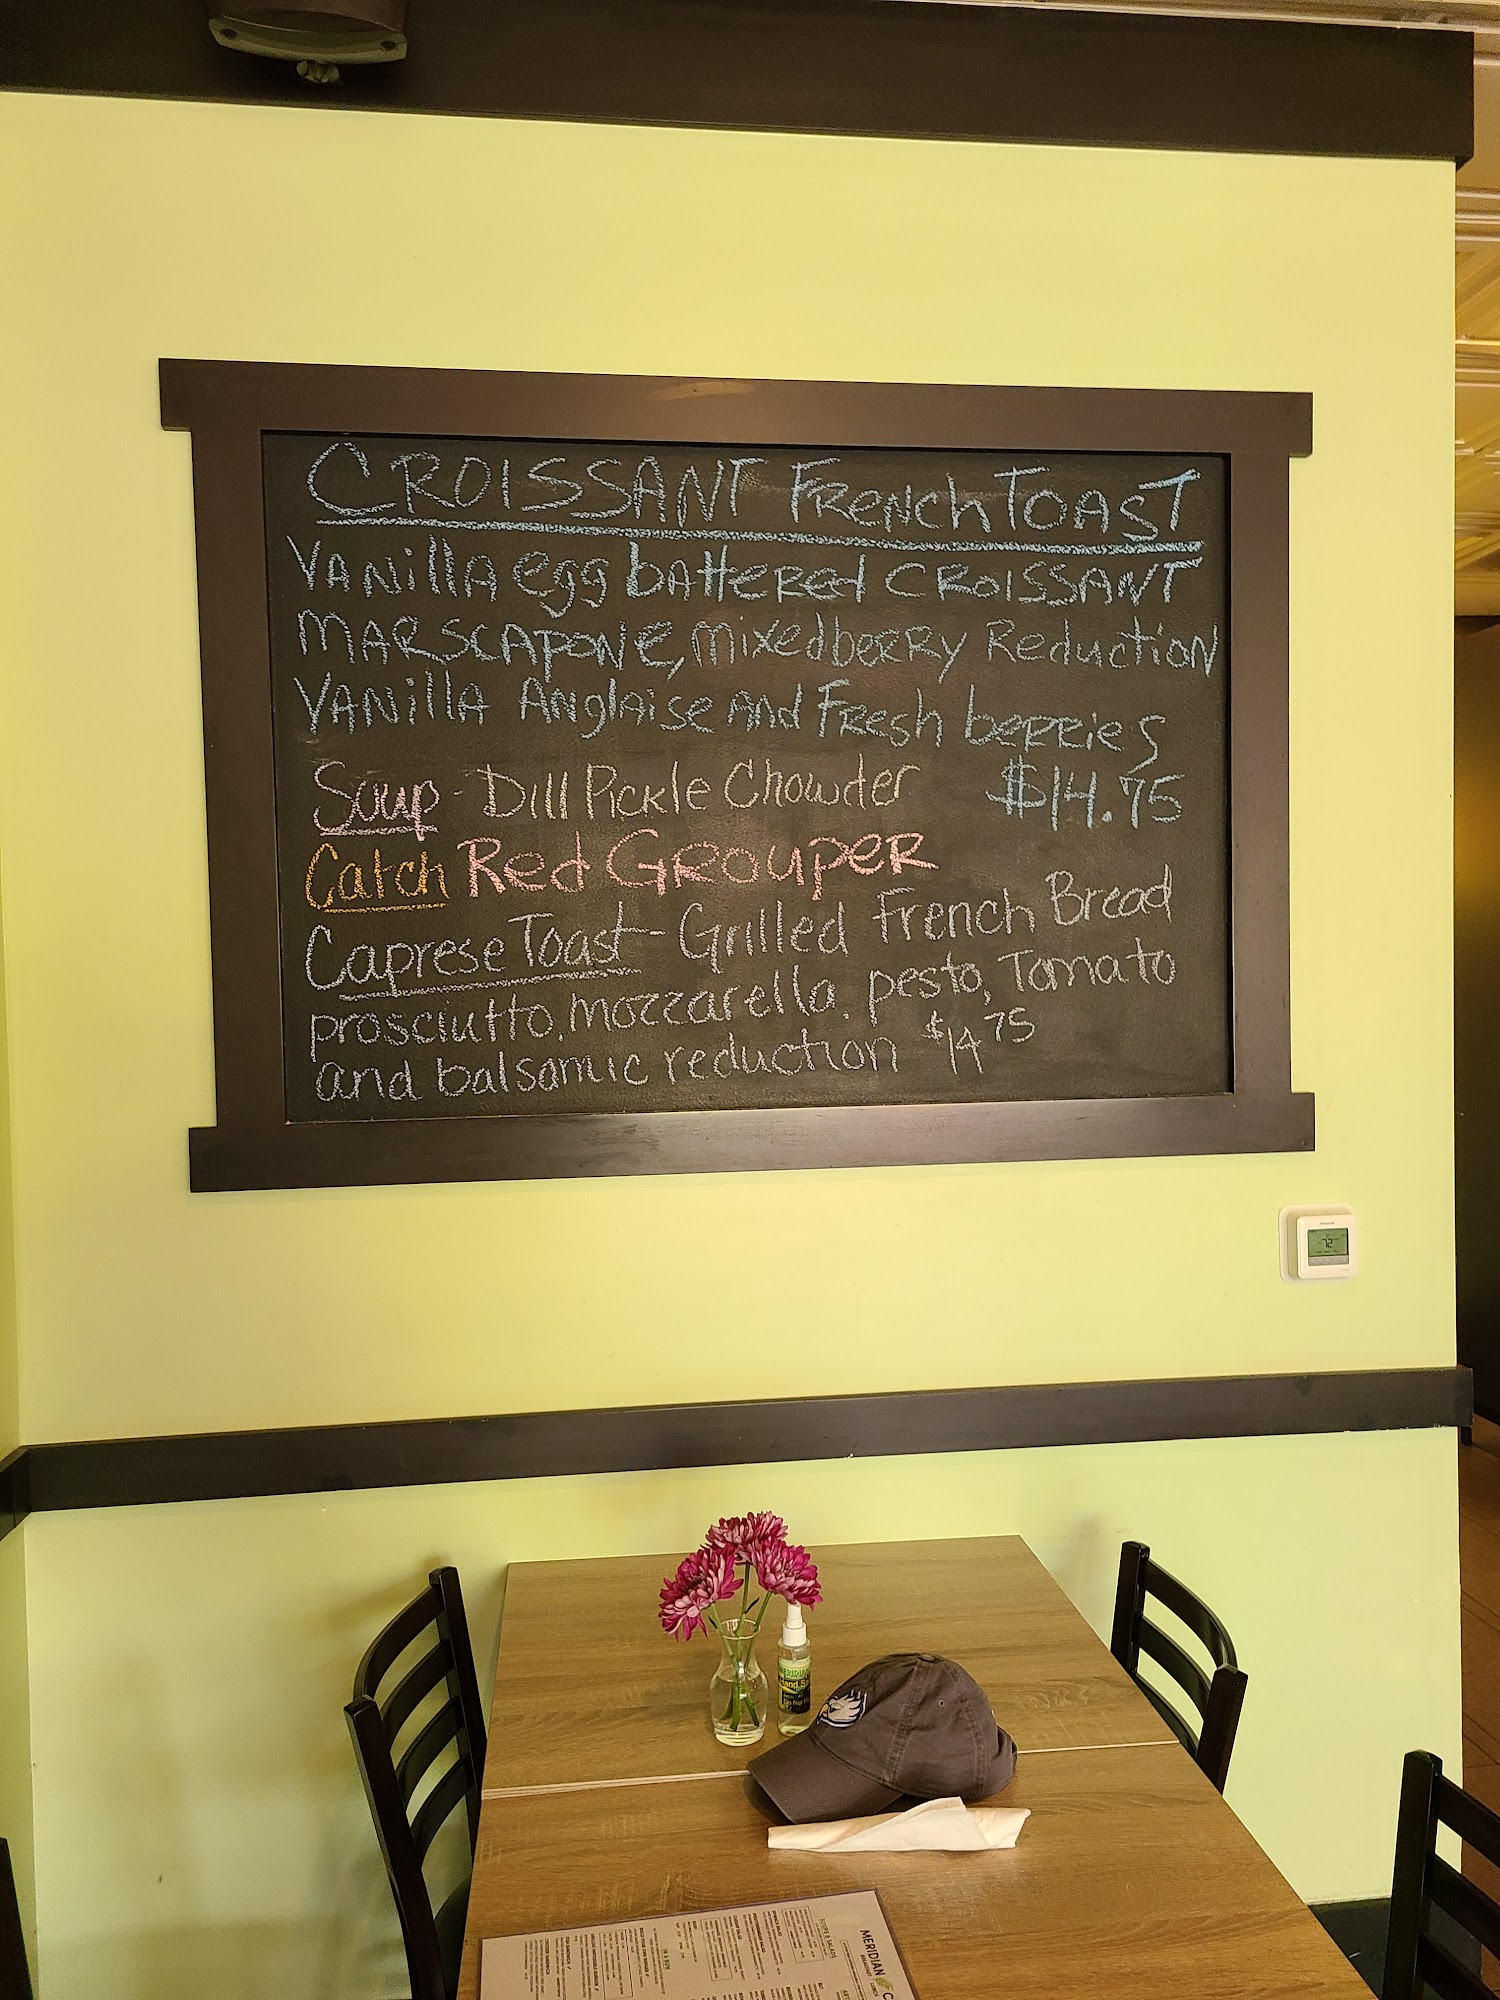 CROISSANT FRENCH TOAST
VANillA egg battERED CROISSANT
MARSCAPONE, Mixed bERRy Reduction
VANillA Anglaise AND FResh bERRies
Soup - Dill Pickle Chowder $14.75
Catch Red GROUPER
Caprese Toast - Grilled French Bread
prosciutto, mozzarella, pesto, Tomato
and balsamic reduction $14.75
72
MERIDIAN
SOUPS & SALADS